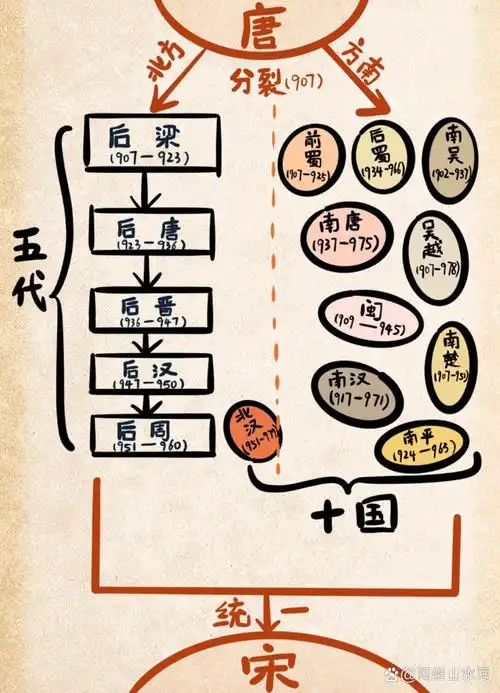 唐
北方
方南
分裂(907)
五代
后梁
(907—923)
后唐
(923—936)
后晋
(936—947)
后汉
(947—950)
后周
(951—960)
前蜀
(907—925)
后蜀
(934—966)
南吴
(902—937)
南唐
(937—975)
吴越
(907—978)
闽
(909—945)
南楚
(907—951)
南汉
(917—971)
北汉
(951—979)
南平
(924—963)
十国
统一
宋